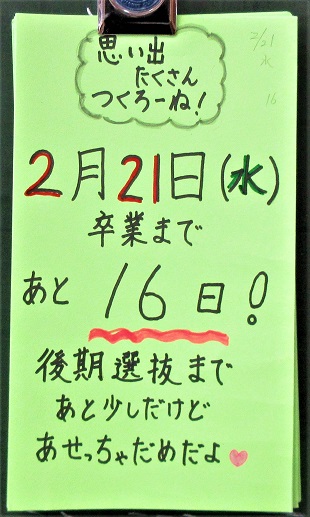 思い出
たくさん
つくろーね!
2/21
水
16
2月21日(水)
卒業まで
あと 16日!
後期選抜まで
あと少しだけど
あせっちゃだめだよ♥